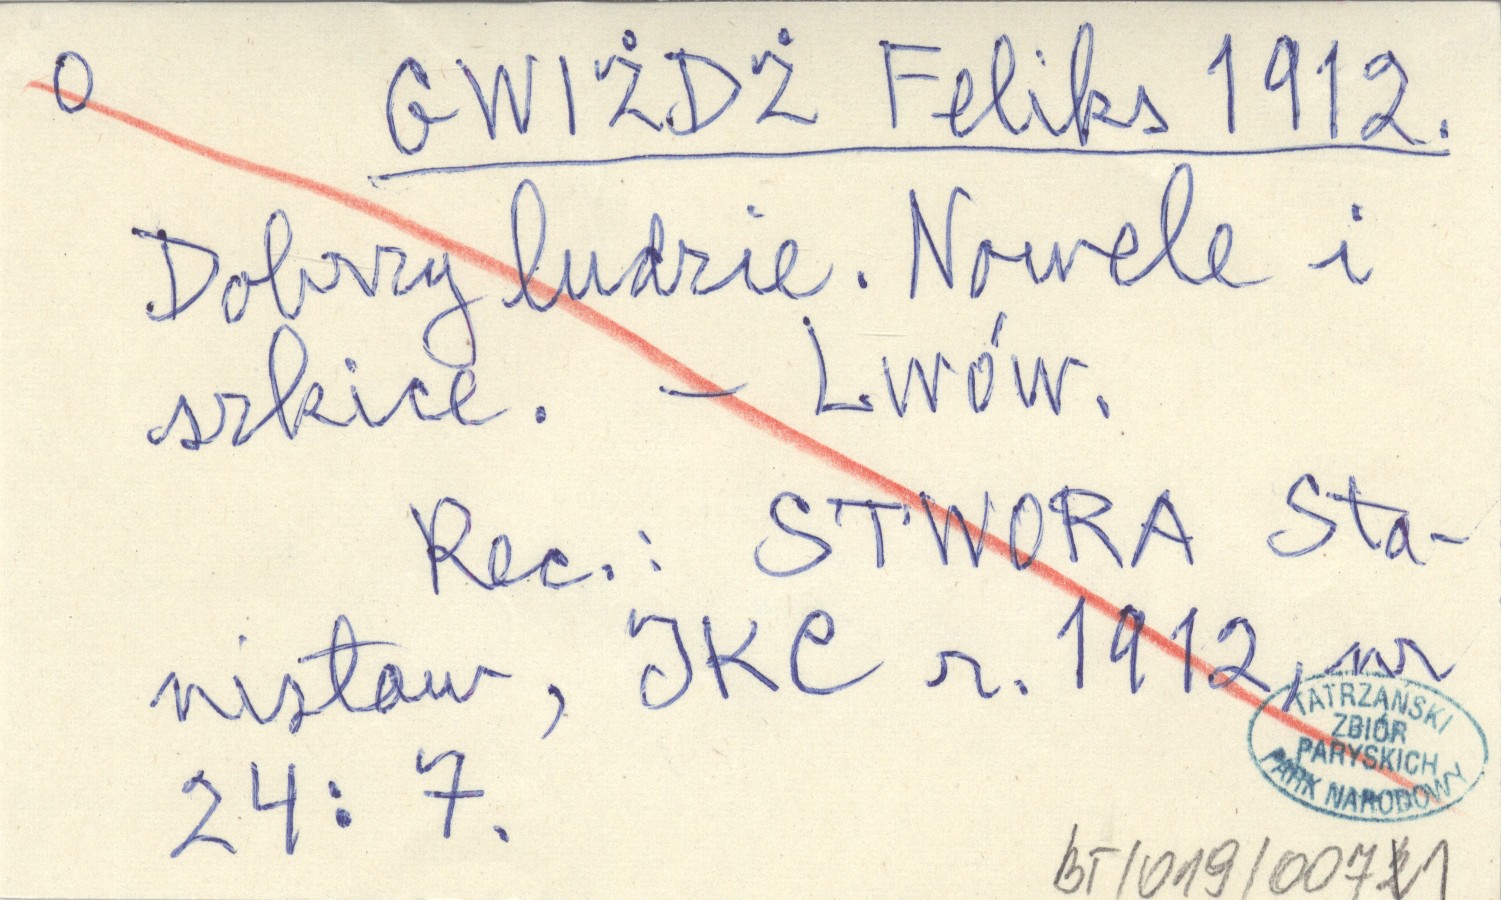 O GWIŻDŻ Feliks 1912.
Dobrzy ludzie. Nowele i
szkice. – Lwów.
Rec.: STWORA Sta-
nisław, IKC r. 1912, nr
24: 7.
TATRZAŃSKI
ZBIÓR
PARYSKICH
PARK NARODOWY